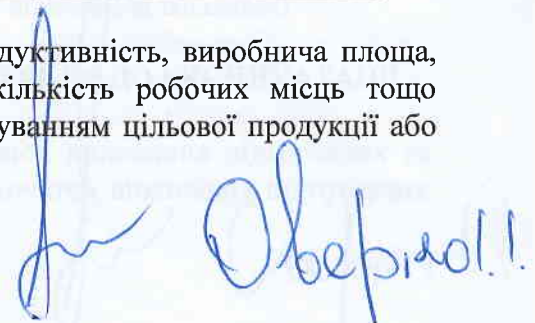 дуктивність, виробнича площа,
кількість робочих місць тощо
уванням цільової продукції або